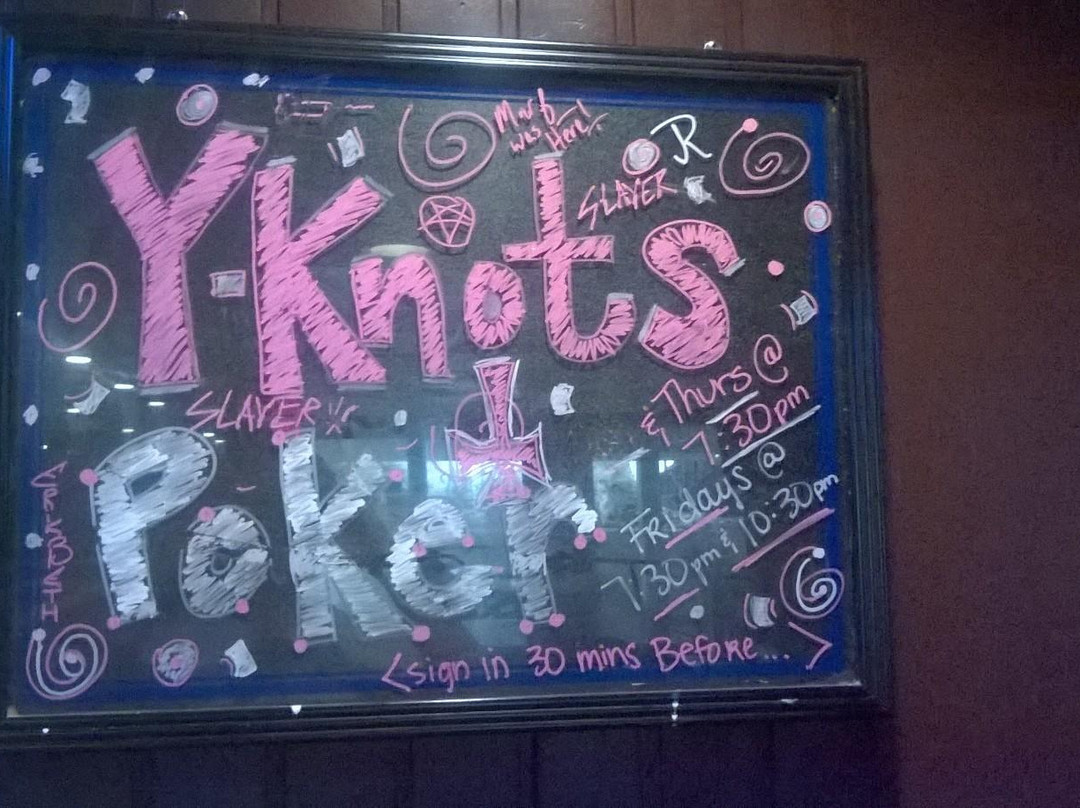 Y-Knots
was Here!
R
SLAYER
SLAYER
Poker
& Thurs @
7:30pm
Fridays @
7:30pm & 10:30pm
<sign in 30 mins Before...>